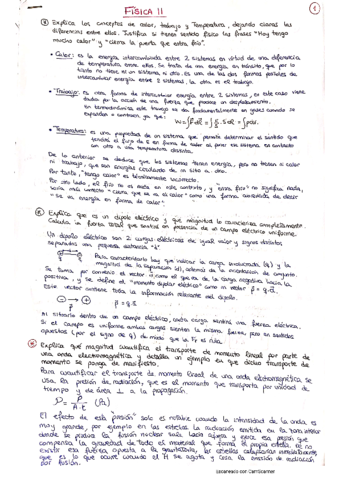 FÍSICA II
①
Explica los conceptos de calor, trabajo y Temperatura, dejando claras las
diferencias entre ellos. Justifica si tienen sentido físico las frases "Hoy tengo
mucho calor" y "cierra la puerta que entra frío".
• Calor: es la energía intercambiada entre 2 sistemas en virtud de una diferencia
de temperatura entre ellos. Se trata de una energía en tránsito, que por lo
tanto no tiene ni un sistema, ni otro. Es una de las dos formas posibles de
intercambiar energía entre 2 sistemas. La otra es el trabajo.
• Trabajo: es una forma de intercambiar energía entre 2 sistemas, en este caso viene
dada por la acción de una fuerza que produce un desplazamiento.
En termodinámica este trabajo se da fundamentalmente en gases cuando se
expanden o contraen, ya que:
• Temperatura: es una propiedad de un sistema que permite determinar el sentido que
tendrá el flujo de E en forma de calor al poner un sistema en contacto
con otro a una temperatura distinta.
De lo anterior se deduce que los sistemas tienen energía, pero no tienen ni calor
ni trabajo, que son energías circulando de un sitio a otro.
Por tanto, "tengo calor" es técnicamente incorrecto.
Por otro lado, el frío no es nada en este contexto, y "entra frío" no significa nada,
sería más correcto "cierra que se va el calor" como una forma coloquial de decir
"se va energía en forma de calor".
Explica que es un dipolo eléctrico y que magnitud lo caracteriza completamente.
Calcula la fuerza total que sentirá en presencia de un campo eléctrico uniforme.
Un dipolo eléctrico son 2 cargas eléctricas de igual valor y signos distintos
separadas una pequeña distancia "d".
Para caracterizarlo hay que indicar la carga involucrada (q) y la
magnitud de la separación (d), además de la orientación del conjunto.
Se toma por convenio el vector d como el que va de la carga negativa hacia la
positiva, y se define el "momento dipolar eléctrico" como un vector p = q·d.
Este vector contiene toda la información relevante del dipolo.
p = q·d
Al situarlo dentro de un campo eléctrico, cada carga sentirá una fuerza eléctrica.
Si el campo es uniforme ambas cargas sienten la misma fuerza, pero en sentidos
opuestos (por el signo de q) de modo que la F_T es nula.
Explica qué magnitud cuantifica el transporte de momento lineal por parte de
una onda electromagnética y detalla un ejemplo en que dicho transporte de
momento se ponga de manifiesto.
Para cuantificar el transporte de momento lineal de una onda electromagnética, se
usa la presión de radiación, que es el momento que transporta por unidad de
tiempo y de área ⊥ a la propagación.
(Pa)
El efecto de esta presión solo es notable cuando la intensidad de la onda es
muy grande, por ejemplo en las estrellas la radiación emitida en la zona interior
donde se produce la fusión nuclear
compensa la gravedad de todo el material que forma la propia estrella. Al no
existir esa fuerza opuesta a la gravitatoria, las estrellas colapsarían inevitablemente
que es lo que ocurre cuando el H se agota y cesa la emisión de radiación
por fusión.
Escaneado con CamScanner